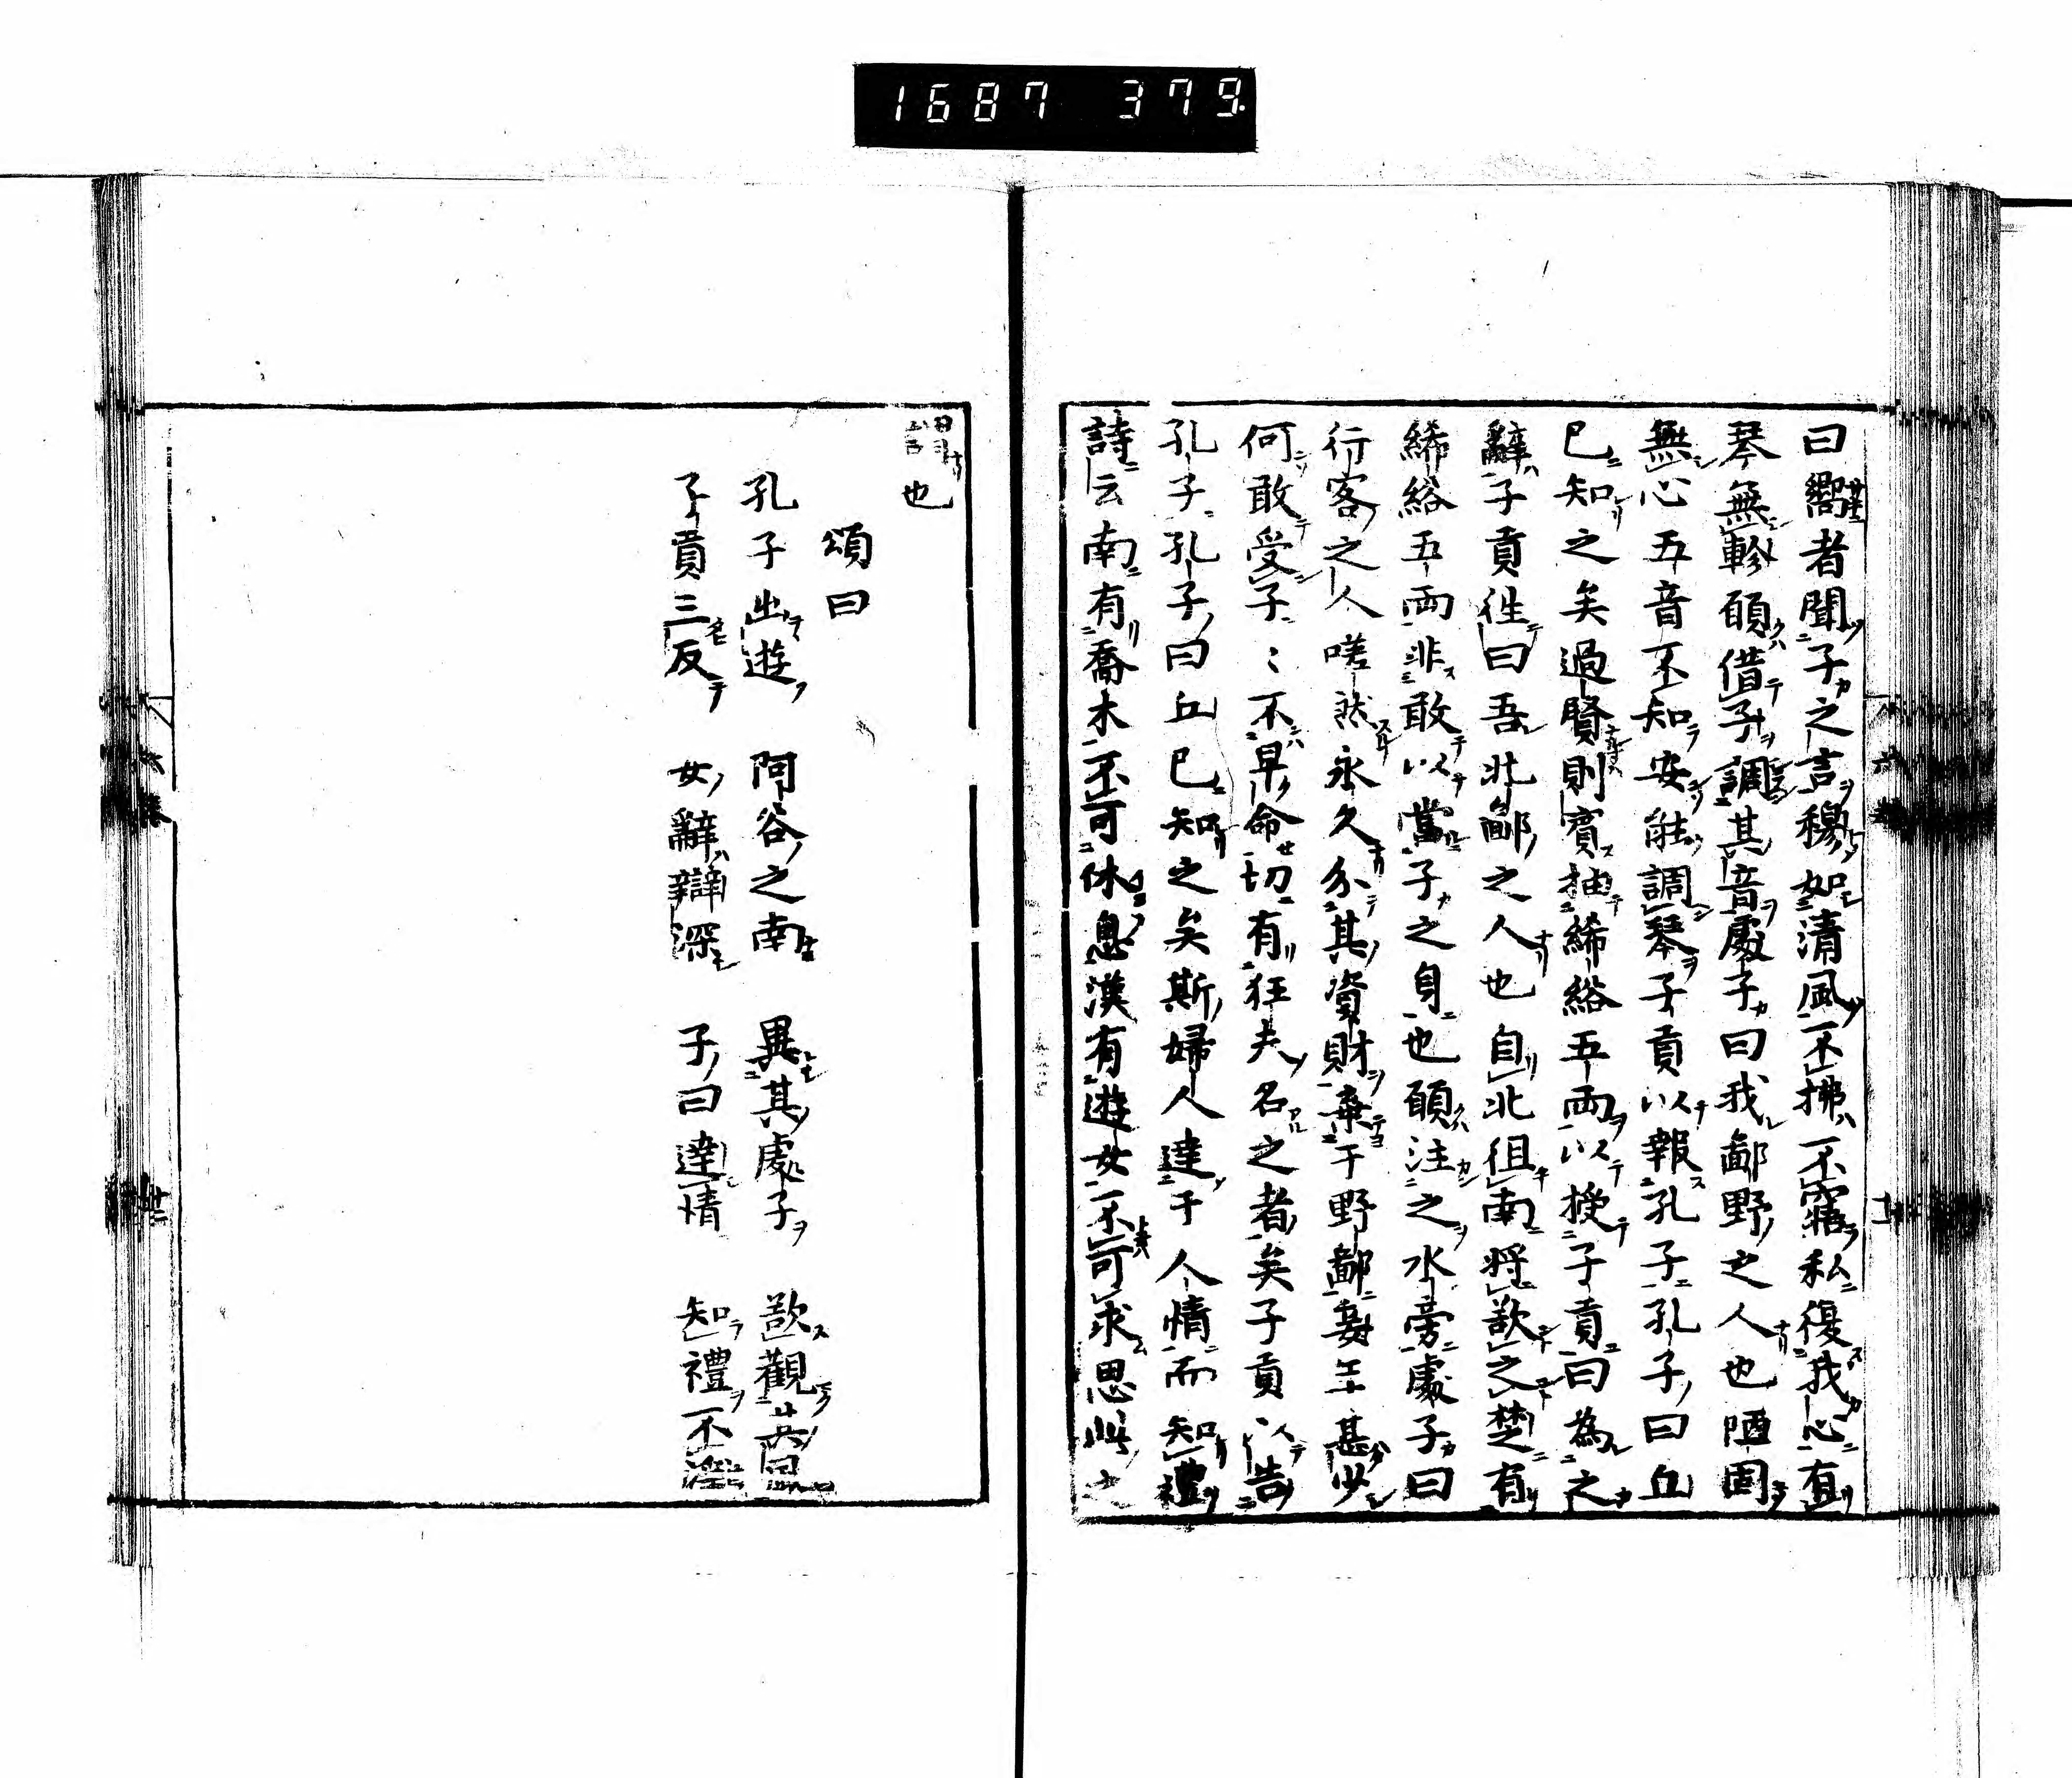 1687 379
曰嚮者聞子之言穆如清風不拂不寤私復我心有
琴無軫願借子調其音處子曰我鄙野之人也陋固
無心五音不知安能調琴子貢以報孔子孔子曰丘
已知之矣過賢則賓抽絺綌五兩以授子貢曰為之
辭子貢徃曰吾北鄙之人也自北徂南將欲之楚有
絺綌五兩非敢以當子之身也願注之水旁處子曰
行客之人嗟然永久分其資財棄于野鄙妾年甚少
何敢受子〻不早命切有狂夫名之者矣子貢以告
孔子孔子曰丘已知之矣斯婦人達于人情而知禮
詩云南有喬木不可休息漢有遊女不可求思此之
謂也
頌曰
孔子出遊 阿谷之南 異其處子 欲觀其風
子貢三反 女辭辯深 子曰達情 知禮不淫